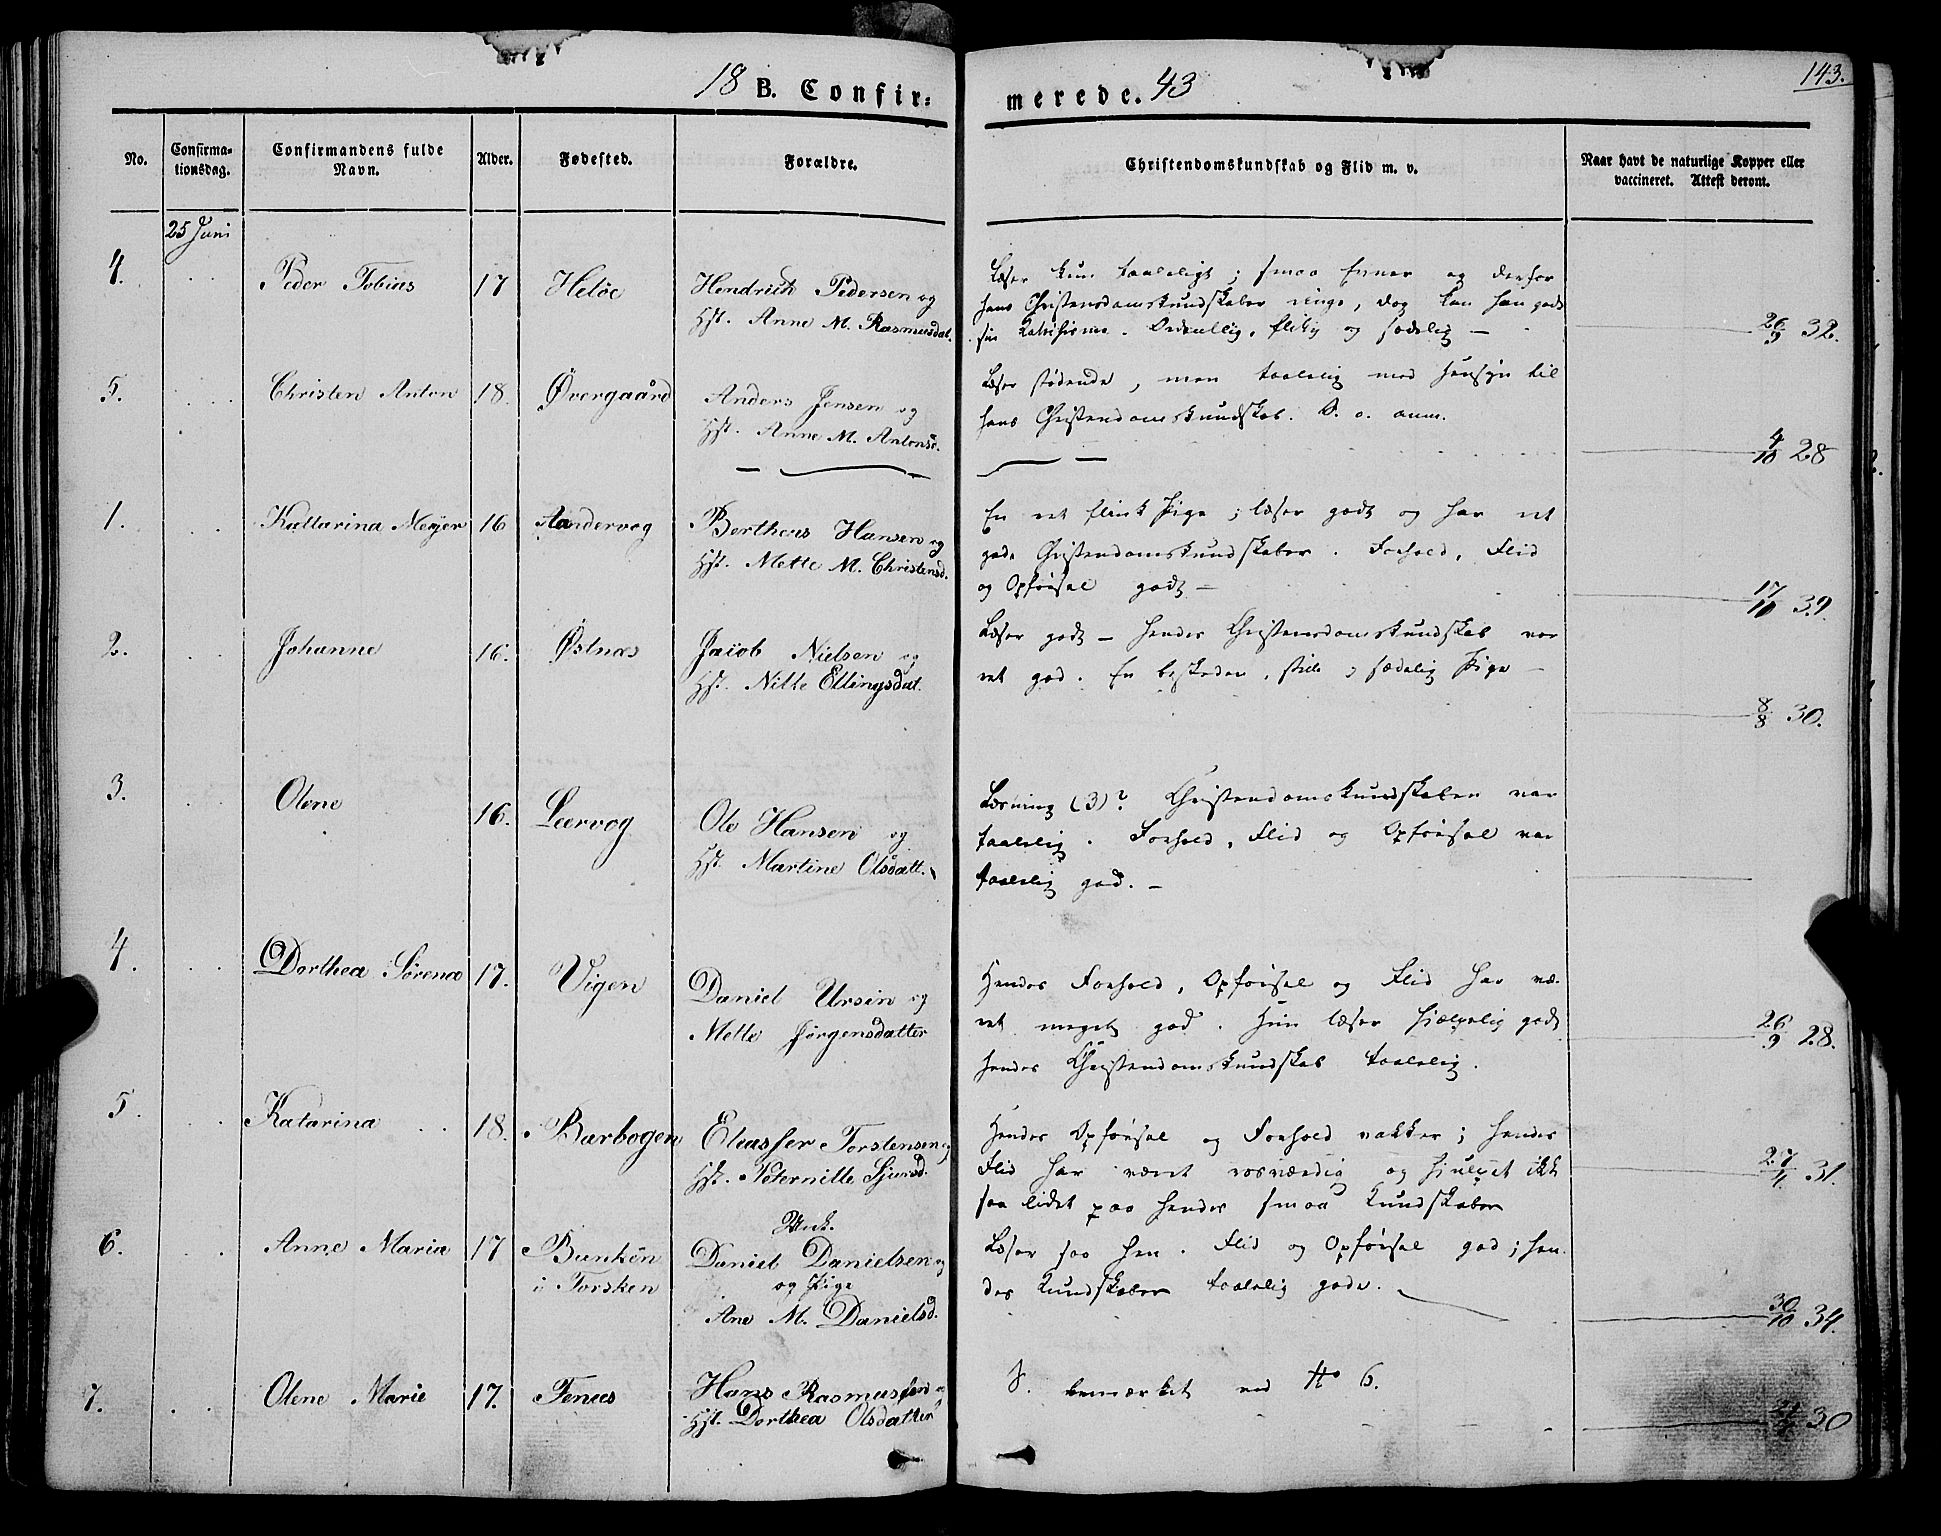 143.
18 B. Confir: merede. 43
No.
Confirma-
tionsdag.
Confirmandens fulde
Navn.
Alder.
Fødested.
Forældre.
Christendomskundskab og Flid m. v.
Naar havt de naturlige Kopper eller
vaccineret. Attest derom.
25 Juni
4. Peder Tobias 17 Heløe
Hendrich Pedersen og
Hst. Anne M. Rasmusdat.
Læser kun taaleligt; smaa Evner og derfor
hans Christendomskundskaber ringe, dog kan han godt
sin Katechisme. Ordentlig, flittig og sædelig —
26/9 32.
5. Christen Anton 18. Øvergaård
Anders Jensen og
Hst. Anne M. Antonsd.
Læser stødende, men taalelig med Hensyn til
hans Christendomskundskab. S. o. anm.
4/10 28
1. Kattarina Meyer 16 Aandervog
Bertheus Hansen og
Hst. Mette M. Christensd.
En ret flink Pige; læser godt og har ret
gode Christendomskundskaber. Forhold, Flid
og Opførsel godt —
17/10 39.
2. Johanne 16. Østnæs
Jacob Nielsen og
Hst. Nille Ellingsdat.
Læser godt — hendes Christendomskundskab var
ret god. En beskeden, stille og sædelig Pige —
8/8 30.
3. Olene 16. Leervog
Ole Hansen og
Hst. Martine Olsdatt.
Læsning (3)? Christendomskundskaben var
taalelig. Forhold, Flid og Opførsel var
taalelig god. —
4. Dorthea Sørena 17. Vigen
Daniel Ursin og
Mette Jørgensdatter
Hendes Forhold, Opførsel og Flid har væ-
ret meget god. Hun læser hjælpelig godt
hendes Christendomskundskab taalelig.
26/9 28.
5. Katarina 18. Barbogen
Eleasser Torstensen og
Hst. Peternille Sjursd.
Hendes Opførsel og Forhold vakker; hendes
Flid har været rosværdig og hjulpet ikke
saa lidet paa hendes smaa Kundskaber
27/1 31.
6. Anne Maria 17 Bunkén
i Torsken
Unk.
Daniel Danielsen og
og Pige
Ane M. Danielsd.
Læser saa hen. Flid og Opførsel god; hen-
des Kundskaber taalelig gode.
30/10 34.
7. Olene Marie 17. Fenes
Hans Rasmussen og
Hst. Dorthea Olsdatter
S. bemærket ved No 6.
30